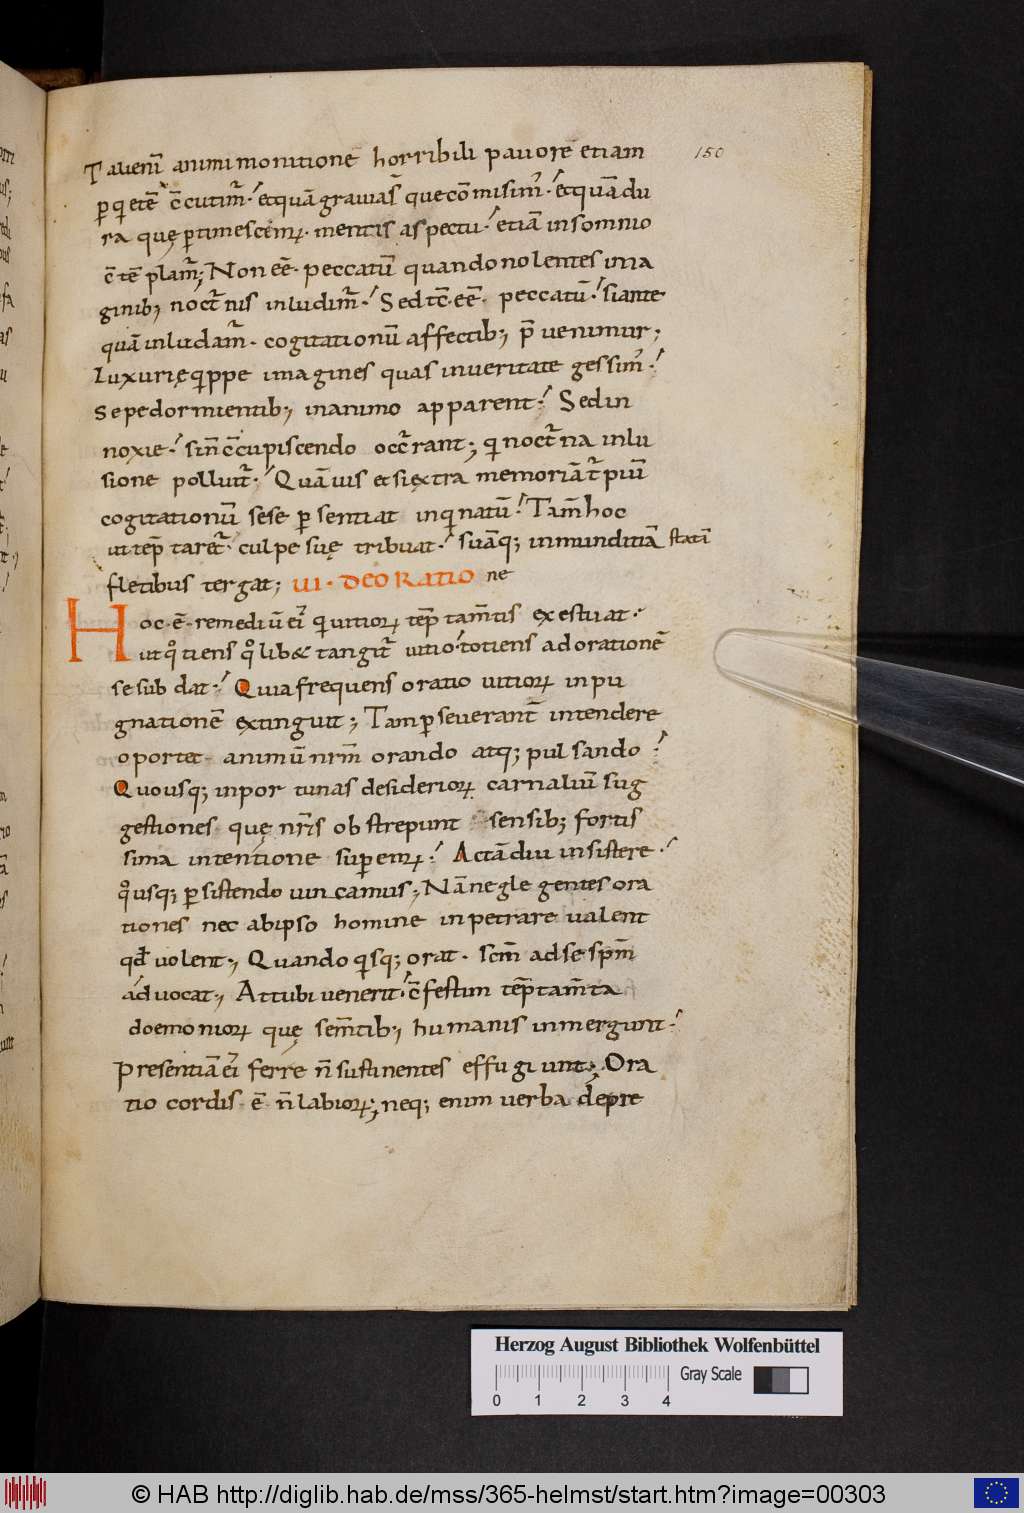 150
Tauenī animi monitione horribili pauorē etiam
ꝑ qͥetē c̄cutimᷣ · etquā grauias̄ que cōmisimꝰ · etquā du
ra quę ꝑtimescemꝝ · mentis aspectu · etiā insomnio
c̄tēplamᷣ; Non eē · peccatū quando nolentes ima
ginib; noctᷣnis inludimᷣ · Sed tc̄ · eē · peccatū · siante
quā inludamᷣ · cogitationū affectib; p̄uenimur;
Luxurię qͥppe imagines quas inueritate gessimꝰ ·
Sepe dormientib; inanimo apparent · Sed in
noxie · sin̄ c̄cupiscendo occᷣrant; qͥ noctᷣna inlu
sione polluitᷣ · Quāuis etsi extra memoriā tᷣpiū
cogitationū sese ꝑsentiat inqͥnatū · Tam̄ hoc
ut tēptaretᷣ · culpe suę tribuat · suāq; inmunditiā statī
fletibus tergat; VI · DE ORATIO ne
Hoc · ē · remediū eiꝰ qͥ uitioꝝ tēptam̄tis exestuat ·
ut qͦtiens qͦlib& tangitᷣ uitio · totiens ad orationē
se subdat · Quia frequens oratio uitioꝝ inpu
gnationē extinguit; Tam ꝑseuerant̄ intendere
oportet · animū nrm̄ orando atq; pulsando ·
Quousq; inportunas desiderioꝝ carnaliū sug
gestiones quę nr̄is obstrepunt sensib; fortis
sima intentione suꝑemꝝ · Ac tādiu insistere ·
qͦusq; ꝑsistendo uincamus; Nā neglegentes ora
tiones nec abipso homine inpetrare ualent
qđ uolent; Quando qͥsq; orat · scm̄ adse spm̄
aduocat; At ubi uenerit · c̄festim tēptam̄ta
doemonioꝝ quę sem̄tib; humanis inmergunt ·
Presentiā eiꝰ ferre n̄ sustinentes effugiunt; Ora
tio cordis · ē · n̄ labioꝝ; neq; enim uerba depre
Herzog August Bibliothek Wolfenbüttel
Gray Scale
0 1 2 3 4
© HAB http://diglib.hab.de/mss/365-helmst/start.htm?image=00303